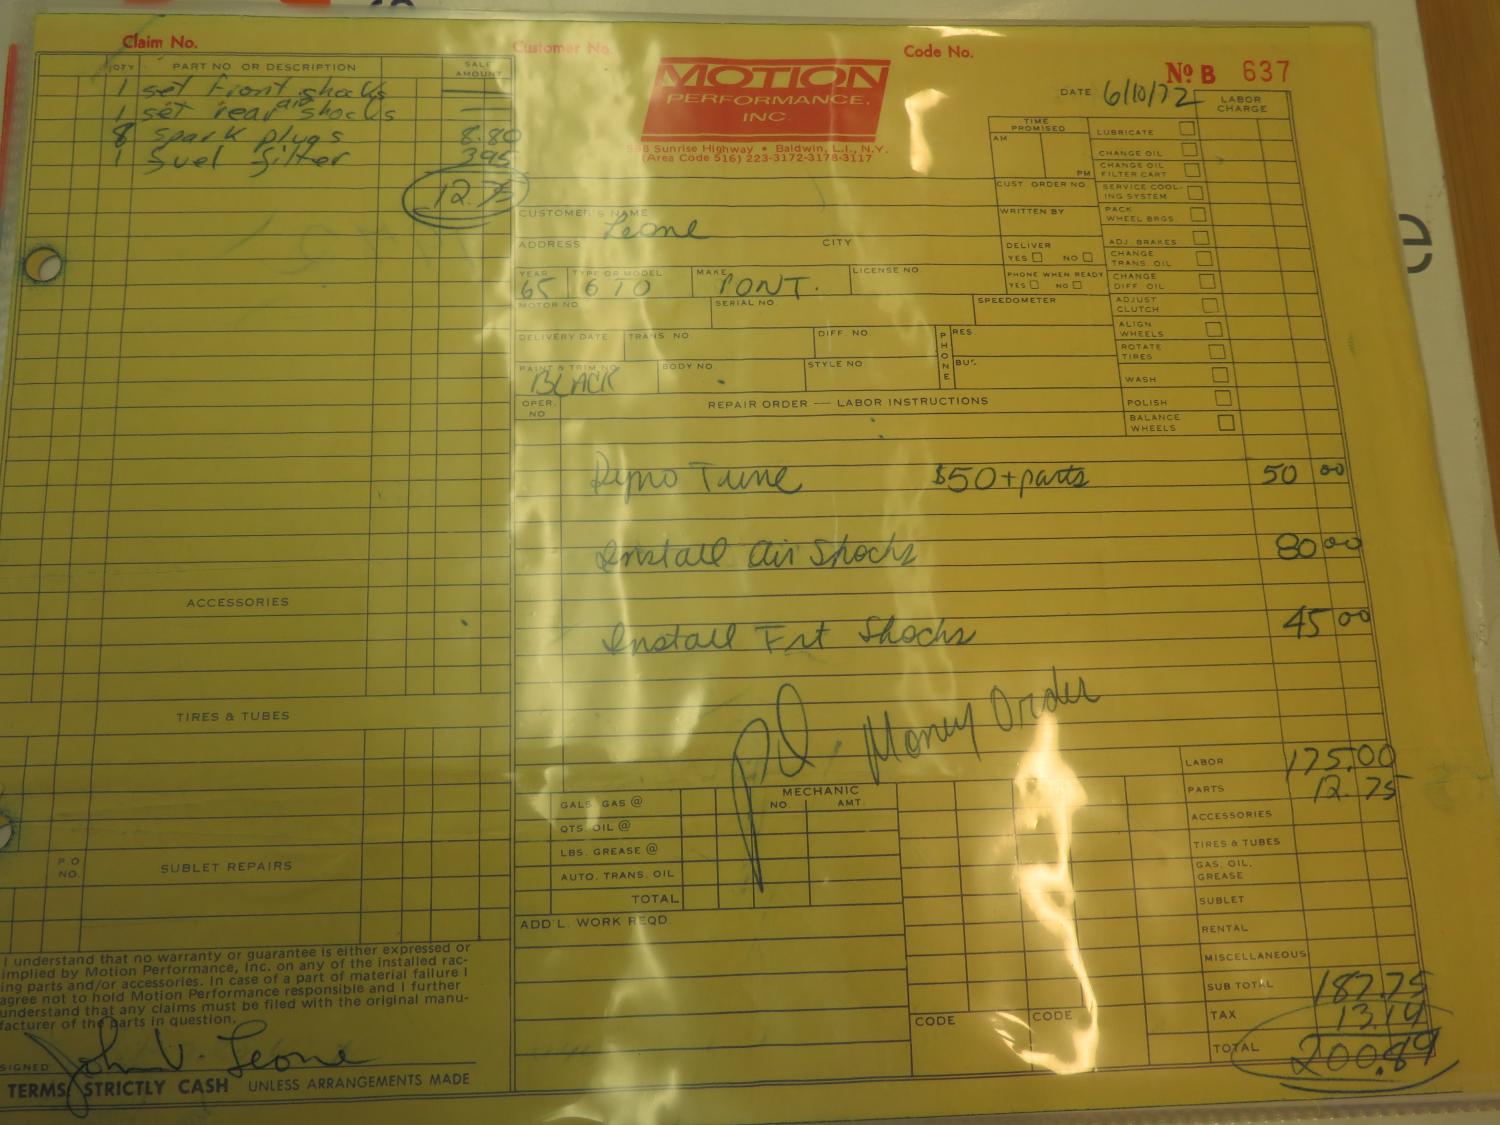 Claim No.
Customer No.
Code No.
QTY PART NO. OR DESCRIPTION SALE AMOUNT
1 set front shocks —
1 set rear air shocks —
8 spark plugs 8.80
1 fuel filter 3.95
12.75
MOTION
PERFORMANCE,
INC.
Sunrise Highway • Baldwin, L.I., N.Y.
(Area Code 516) 223-3172-3178-3117
No B 637
DATE 6/10/72
LABOR CHARGE
TIME PROMISED
AM
PM
CUST. ORDER NO.
WRITTEN BY
DELIVER
YES NO
PHONE WHEN READY
YES NO
LUBRICATE
CHANGE OIL
CHANGE OIL FILTER CART
SERVICE COOLING SYSTEM
PACK WHEEL BRGS.
ADJ. BRAKES
CHANGE TRANS. OIL
CHANGE DIFF. OIL
ADJUST CLUTCH
ALIGN WHEELS
ROTATE TIRES
WASH
POLISH
BALANCE WHEELS
CUSTOMER'S NAME Leone
ADDRESS CITY
YEAR TYPE OR MODEL MAKE LICENSE NO.
65 GTO PONT.
MOTOR NO. SERIAL NO. SPEEDOMETER
DELIVERY DATE TRANS. NO. DIFF. NO. PHONE RES.
PAINT & TRIM NO. BODY NO. STYLE NO. BUS.
BLACK
OPER. NO. REPAIR ORDER — LABOR INSTRUCTIONS
Dyno Tune $50 + parts 50 00
Install air Shocks 80 00
Install Frt Shocks 45 00
pd. Money Order
ACCESSORIES
TIRES & TUBES
P.O. NO. SUBLET REPAIRS
MECHANIC
NO. AMT.
GALS. GAS @
QTS. OIL @
LBS. GREASE @
AUTO. TRANS. OIL
TOTAL
ADD'L. WORK REQD.
CODE CODE
LABOR 175.00
PARTS 12.75
ACCESSORIES
TIRES & TUBES
GAS, OIL, GREASE
SUBLET
RENTAL
MISCELLANEOUS
SUB TOTAL 187.75
TAX 13.14
TOTAL 200.89
I understand that no warranty or guarantee is either expressed or
implied by Motion Performance, Inc. on any of the installed rac-
ing parts and/or accessories. In case of a part of material failure I
agree not to hold Motion Performance responsible and I further
understand that any claims must be filed with the original manu-
facturer of the parts in question.
SIGNED John V. Leone
TERMS STRICTLY CASH UNLESS ARRANGEMENTS MADE